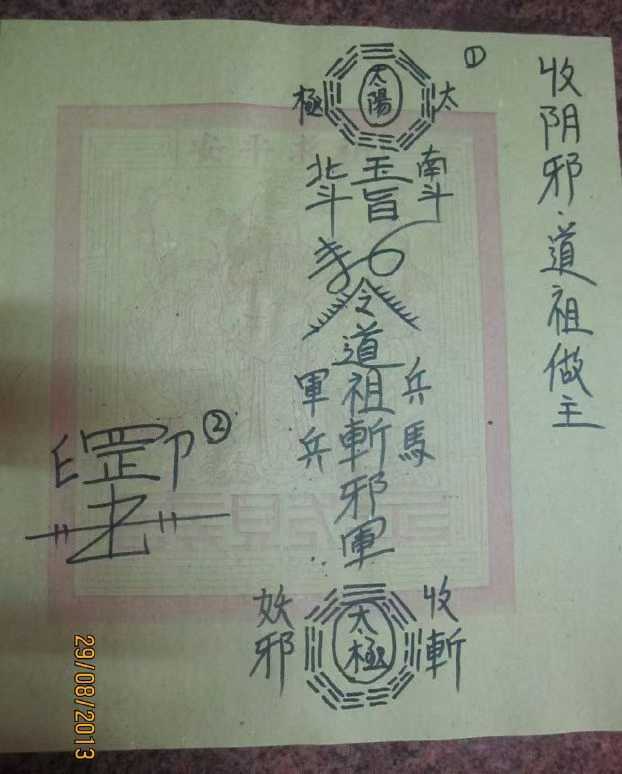 收阴邪·道祖做主
①
太陽
太
極
玉旨
南斗
北斗
令道祖斬邪軍
兵馬
軍兵
太極
收斬
妖邪
②
罡
29/08/2013